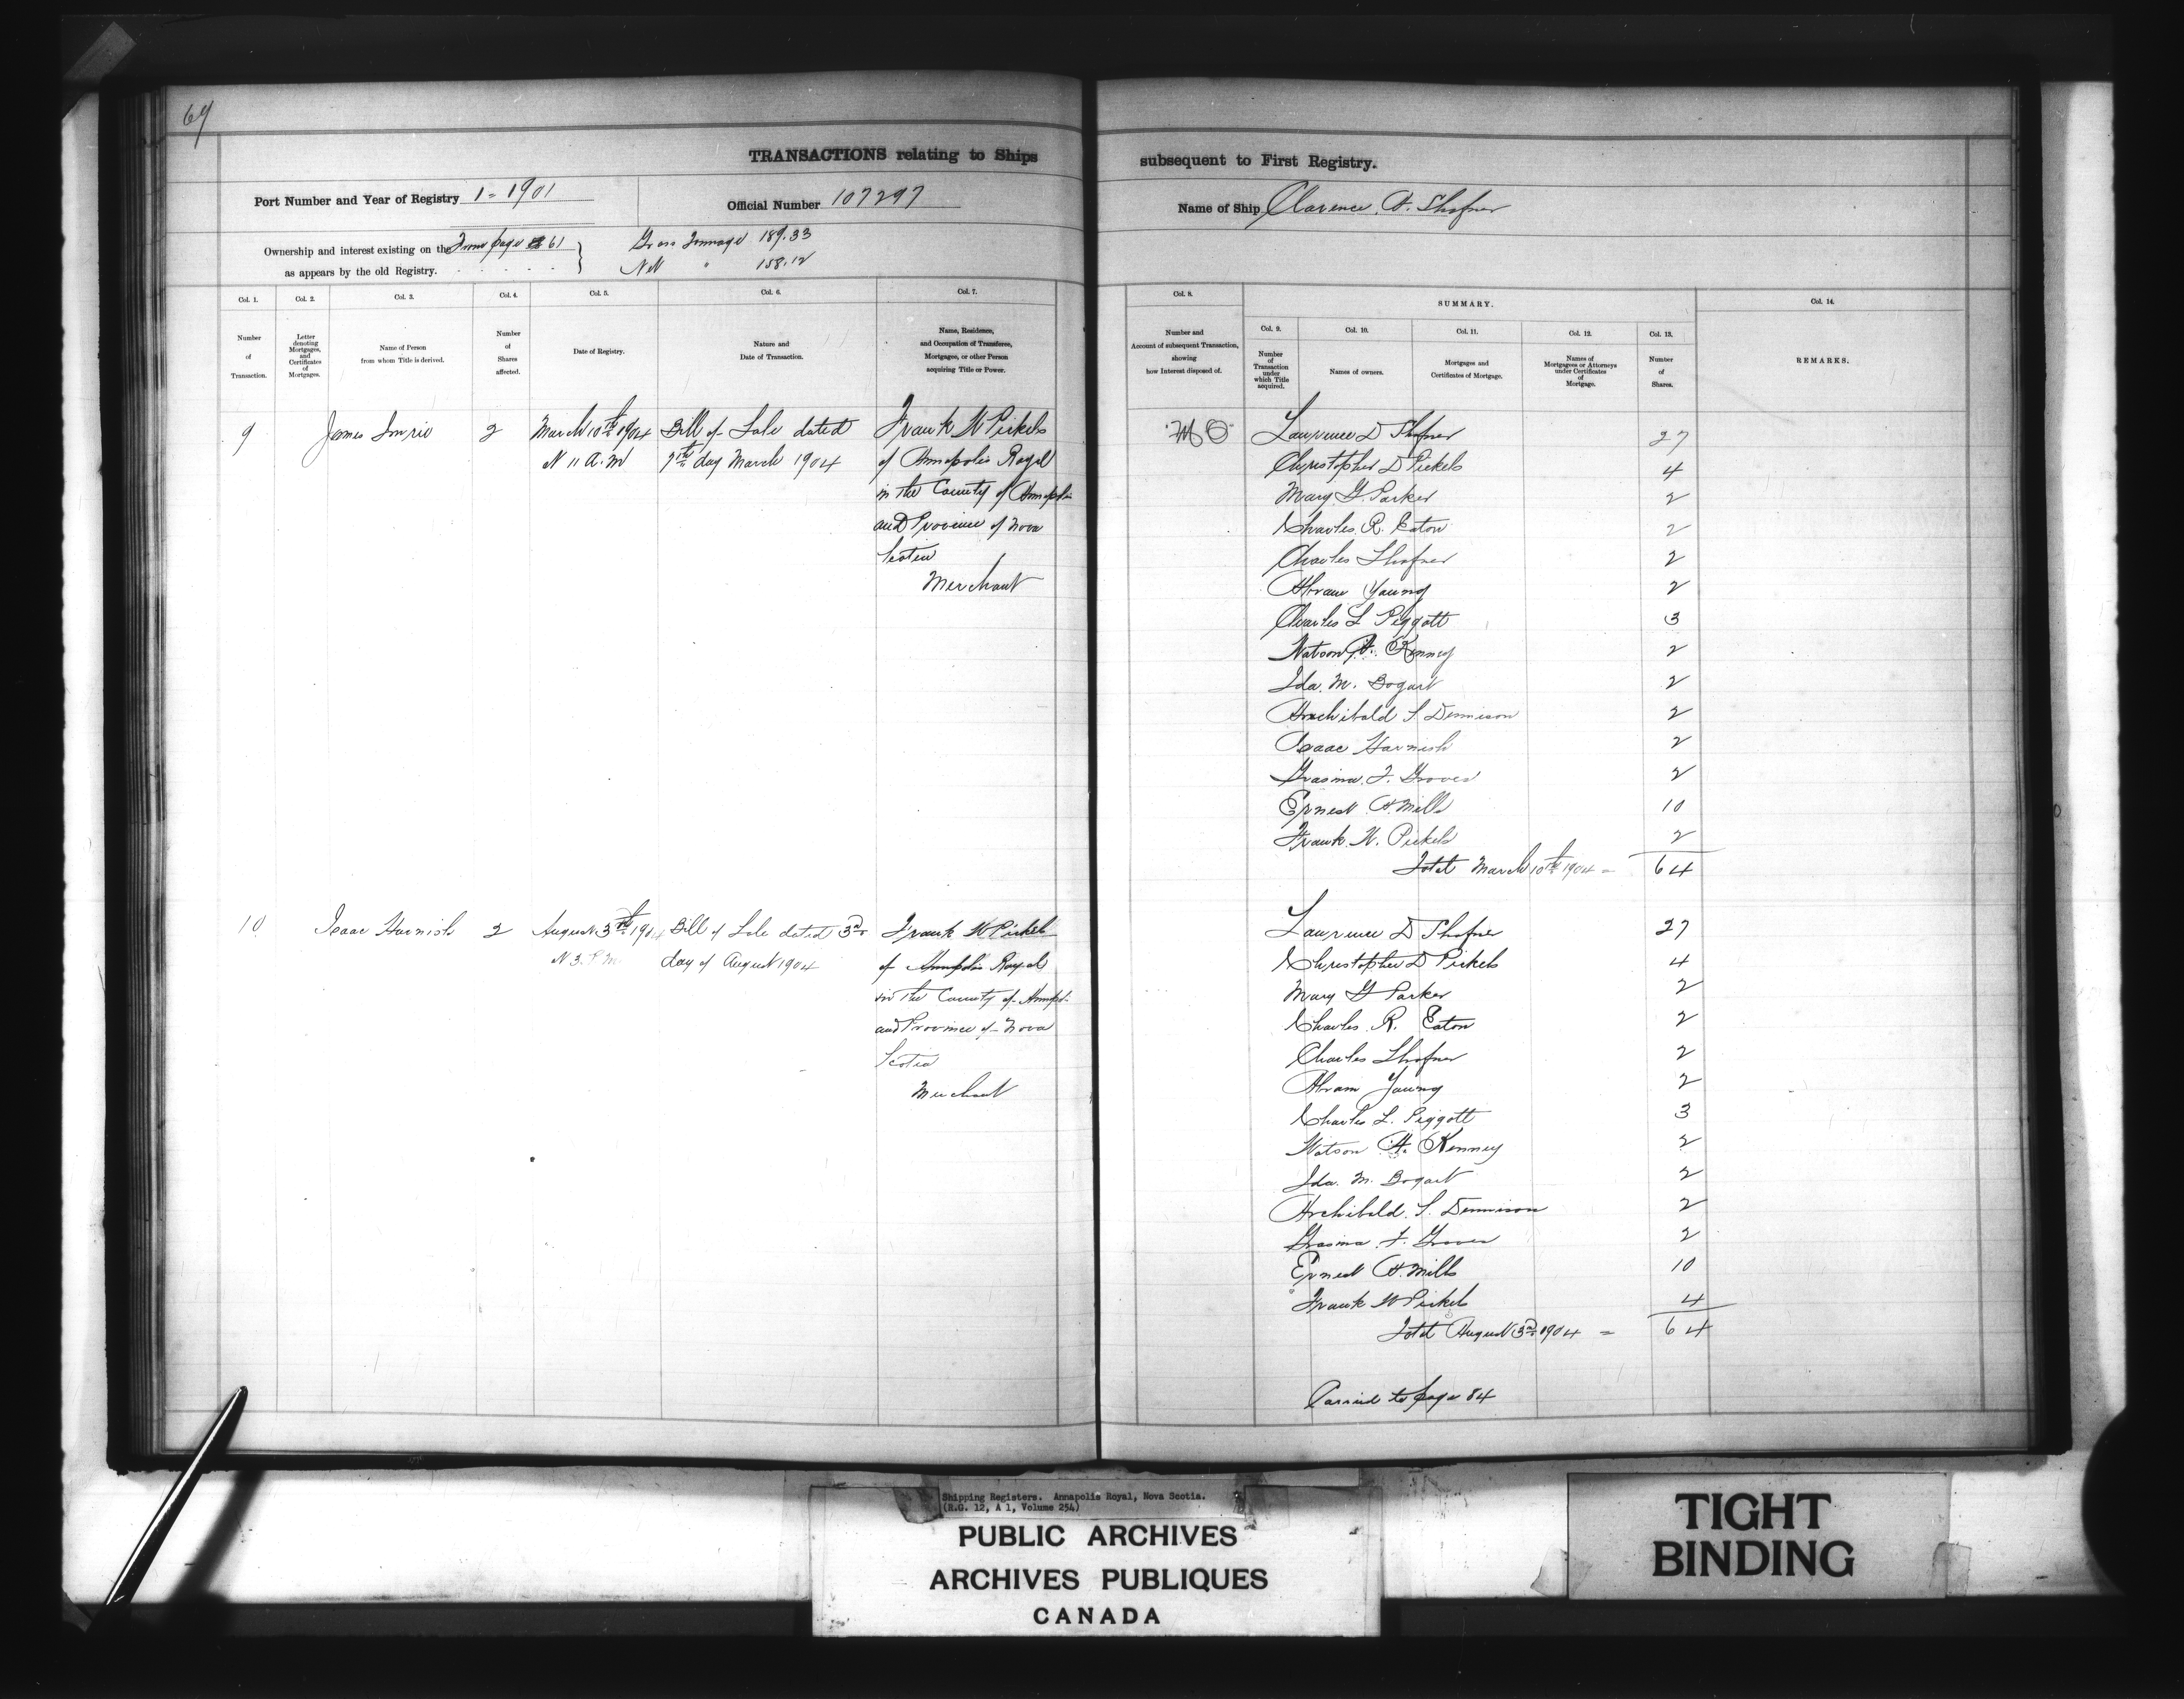 64
TRANSACTIONS relating to Ships subsequent to First Registry.
Port Number and Year of Registry 1 = 1901
Official Number 107297
Name of Ship Clarence A. Shafner
Ownership and interest existing on the From page 61
as appears by the old Registry.
Gross Tonnage 189.33
Net " 158.12
Col. 1.
Number
of
Transaction.
Col. 2.
Letter
denoting
Mortgages,
and
Certificates
of
Mortgages.
Col. 3.
Name of Person
from whom Title is derived.
Col. 4.
Number
of
Shares
affected.
Col. 5.
Date of Registry.
Col. 6.
Nature and
Date of Transaction.
Col. 7.
Name, Residence,
and Occupation of Transferee,
Mortgagee, or other Person
acquiring Title or Power.
Col. 8.
Number and
Account of subsequent Transaction,
showing
how Interest disposed of.
SUMMARY.
Col. 9.
Number
of
Transaction
under
which Title
acquired.
Col. 10.
Names of owners.
Col. 11.
Mortgages and
Certificates of Mortgage.
Col. 12.
Names of
Mortgagees or Attorneys
under Certificates
of
Mortgage.
Col. 13.
Number
of
Shares.
Col. 14.
REMARKS.
9 James Imrie 2 March 10th 1904 Bill of Sale dated Frank W Pickels
at 11 A.M 7th day March 1904 of Annapolis Royal
in the County of Annapolis
and Province of Nova
Scotia
Merchant
Lawrence D Shafner 27
Christopher D Pickels 4
Mary G. Parker 2
Charles R. Eaton 2
Charles Shafner 2
Abram Young 2
Charles L Piggott 3
Watson A. Kenney 2
Ida. M. Bogart 2
Archibald S. Dennison 2
Isaac Harnish 2
Grasina. F. Groves 2
Ernest A. Mills 10
Frank. W. Pickels 2
Total March 10th 1904 = 64
10 Isaac Harnish 2 August 3rd 1904 Bill of Sale dated 3rd Frank W Pickels
at 3. P.M. day of August 1904 of Annapolis Royal
in the County of Annapolis
and Province of Nova
Scotia
Merchant
Lawrence D Shafner 27
Christopher D Pickels 4
Mary G Parker 2
Charles. R. Eaton 2
Charles Shafner 2
Abram Young 2
Charles L. Piggott 3
Watson A. Kenney 2
Ida. M. Bogart 2
Archibald. S. Dennison 2
Grasina. F. Groves 2
Ernest A. Mills 10
Frank W Pickels 4
Total August 3rd 1904 = 64
Carried to page 84
Shipping Registers. Annapolis Royal, Nova Scotia.
(R.G. 12, A 1, Volume 254)
PUBLIC ARCHIVES
ARCHIVES PUBLIQUES
CANADA
TIGHT
BINDING